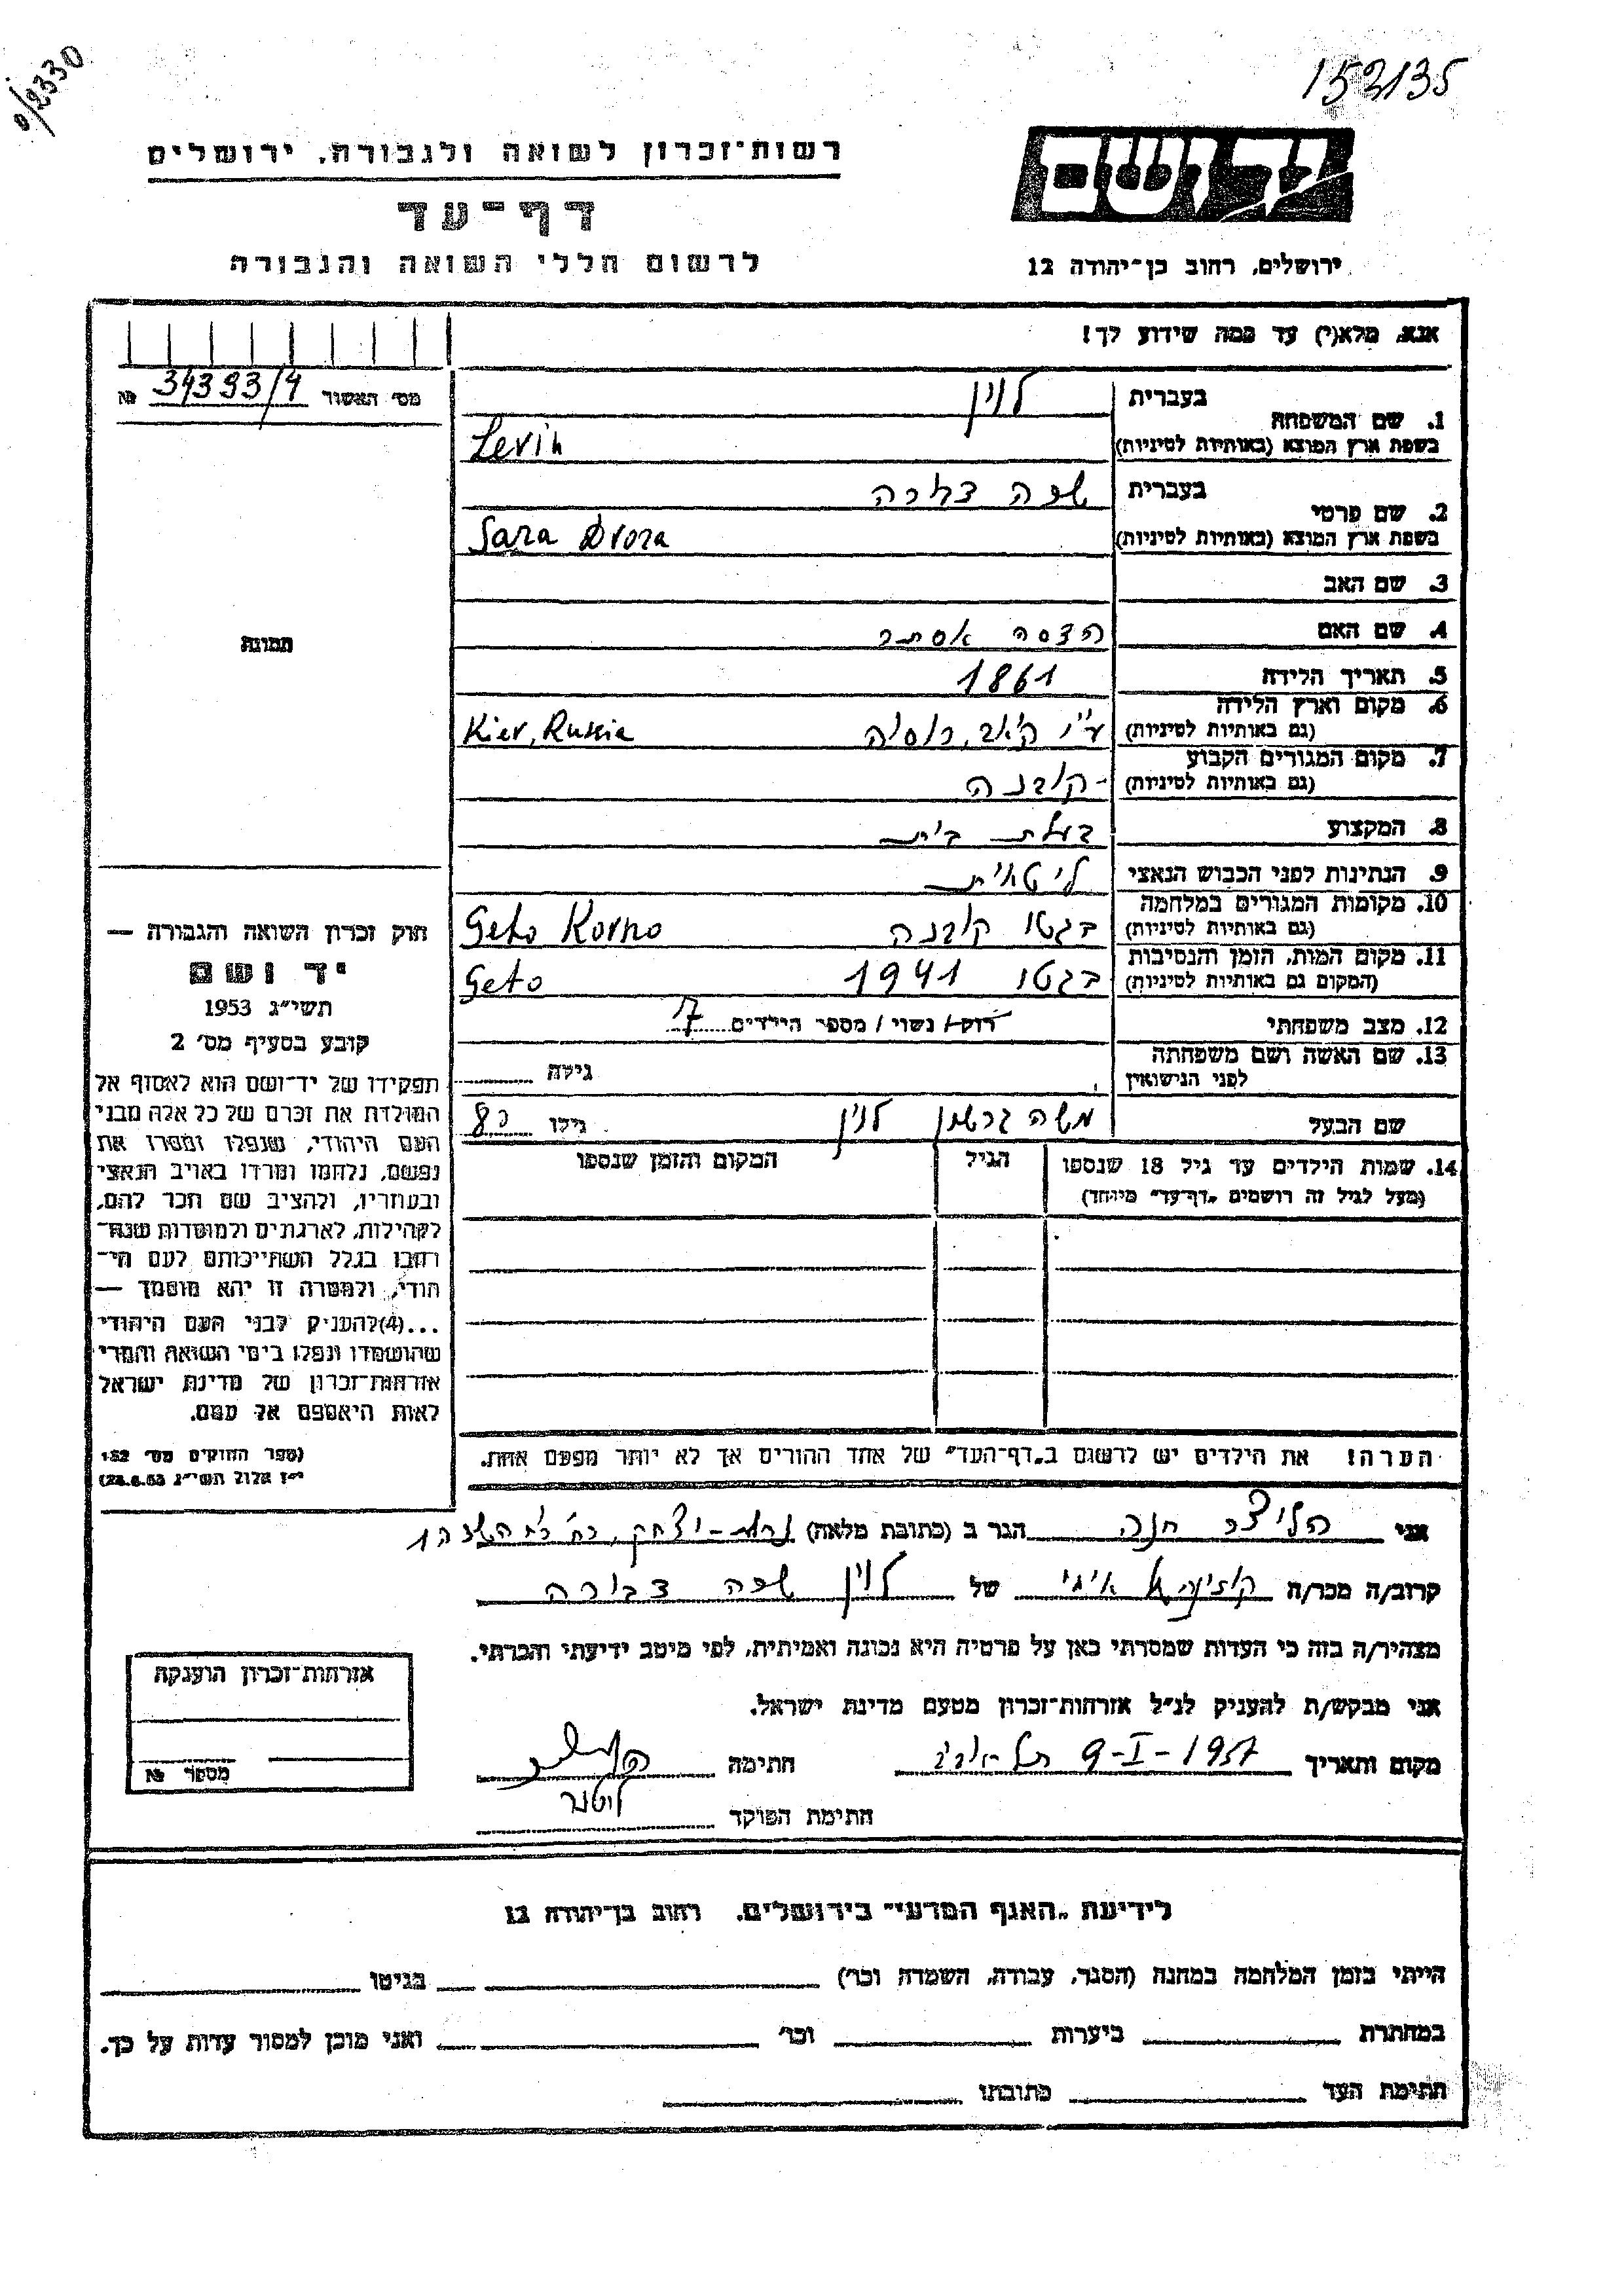 0/2330
152135
יד ושם
רשות-זכרון לשואה ולגבורה, ירושלים
דף-עד
לרשום חללי השואה והגבורה
ירושלים, רחוב בן-יהודה 12
אנא, מלא(י) עד כמה שידוע לך!
מס׳ האשור 34393/4 №
1. שם המשפחה
בעברית לוין
בשפת ארץ המוצא (באותיות לטיניות) Levin
2. שם פרטי
בעברית שרה דבורה
בשפת ארץ המוצא (באותיות לטיניות) Sara Dvora
3. שם האב
4. שם האם הדסה אסתר
5. תאריך הלידה 1861
6. מקום וארץ הלידה
(גם באותיות לטיניות) ע״י קיוב, רוסיה Kiev, Russia
7. מקום המגורים הקבוע
(גם באותיות לטיניות) קובנה
8. המקצוע בעלת בית
9. הנתינות לפני הכבוש הנאצי ליטאית
10. מקומות המגורים במלחמה
(גם באותיות לטיניות) בגטו קובנה Geto Kovno
11. מקום המות, הזמן והנסיבות
(המקום גם באותיות לטיניות) בגטו 1941 Geto
12. מצב משפחתי רוק / נשוי / מספר הילדים 7
13. שם האשה ושם משפחתה
לפני הנישואין
גילה
שם הבעל משה גרשון לוין גילו 80
14. שמות הילדים עד גיל 18 שנספו
(מעל לגיל זה רושמים „דף-עד״ מיוחד)
הגיל
המקום והזמן שנספו
הערה! את הילדים יש לרשום ב„דף-העד״ של אחד ההורים אך לא יותר מפעם אחת.
תמונה
חוק זכרון השואה והגבורה —
יד ושם
תשי״ג 1953
קובע בסעיף מס׳ 2
תפקידו של יד-ושם הוא לאסוף אל
המולדת את זכרם של כל אלה מבני
העם היהודי, שנפלו ומסרו את
נפשם, נלחמו ומרדו באויב הנאצי
ובעוזריו, ולהציב שם וזכר להם,
לקהילות, לארגונים ולמוסדות שנח-
רבו בגלל השתייכותם לעם הי-
הודי, ולמטרה זו יהא מוסמך —
...(4)להעניק לבני העם היהודי
שהושמדו ונפלו בימי השואה והמרי
אזרחות-זכרון של מדינת ישראל
לאות היאספם אל עמם.
(ספר החוקים מס׳ 132
י״ז אלול תשי״ג 28.8.53)
אני חנה הגר ב (כתובת מלאה) נחלת-יצחק,
קרוב/ה מכר/ה של לוין שרה דבורה
מצהיר/ה בזה כי העדות שמסרתי כאן על פרטיה היא נכונה ואמיתית, לפי מיטב ידיעתי והכרתי.
אני מבקש/ת להעניק לנ״ל אזרחות-זכרון מטעם מדינת ישראל.
מקום ותאריך תל-אביב 9-I-1957 חתימה
חתימת הפוקד
אזרחות-זכרון הוענקה
מספר №
לידיעת „האגף המדעי״ בירושלים. רחוב בן-יהודה 12
הייתי בזמן המלחמה במחנה (הסגר, עבודה, השמדה וכו׳) בגיטו
במחתרת ביערות וכו׳ ואני מוכן למסור עדות על כך.
חתימת העד כתובתו